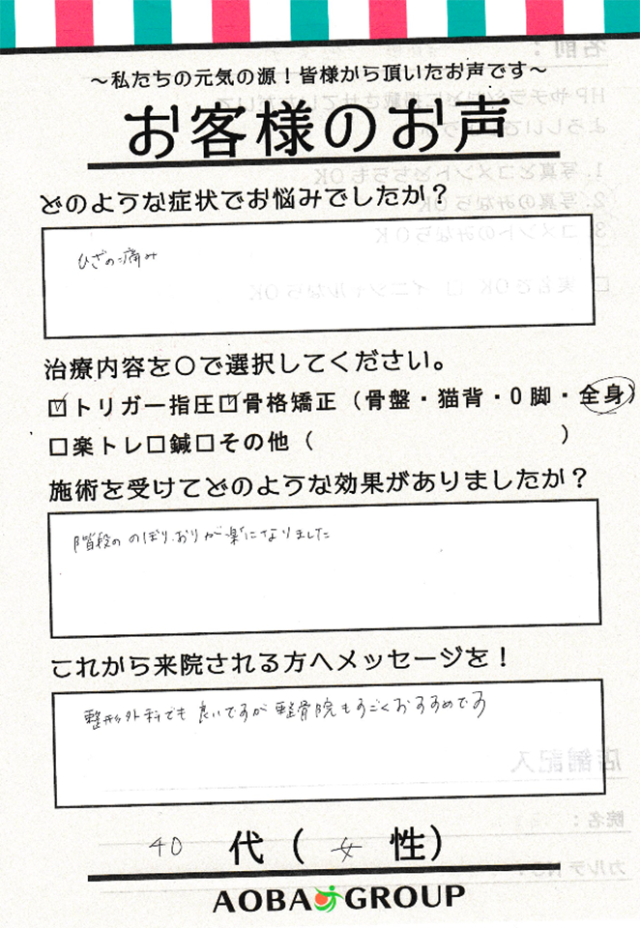 ~私たちの元気の源！皆様から頂いたお声です~
お客様のお声
どのような症状でお悩みでしたか？
ひざの痛み
治療内容を〇で選択してください。
☑トリガー指圧☑骨格矯正（骨盤・猫背・O脚・全身）
□楽トレ□鍼□その他（　　　　　　　　　　）
施術を受けてどのような効果がありましたか？
階段の のぼりおりが楽になりました
これから来院される方へメッセージを！
整形外科でも良いですが整骨院もすごくおすすめです
40 代（ 女 性）
AOBA GROUP